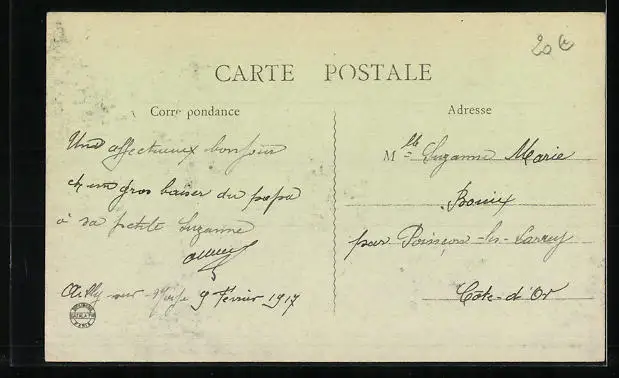 20 €
CARTE POSTALE
Correspondance
Adresse
Un affectueux bonjour
et un gros baiser du papa
à sa petite Suzanne
Ailly-sur-Noye 9 février 1917
Mlle Suzanne Marie
Bouix
par Poinson-les-Larrey
Côte-d'Or